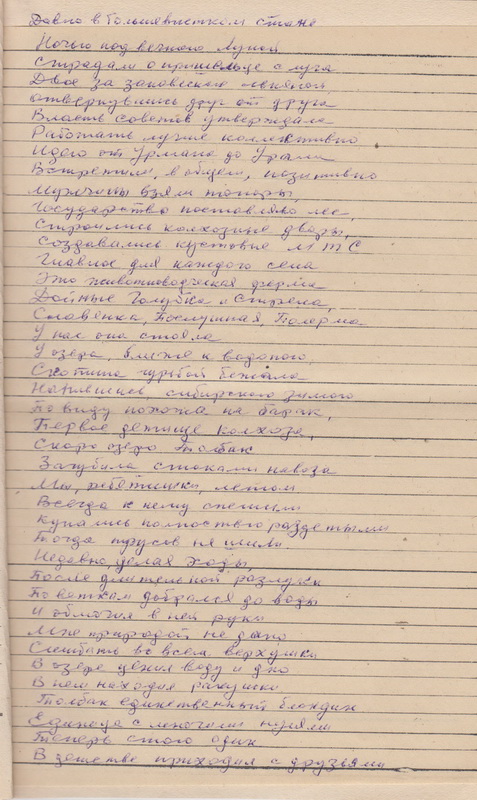 Давно в большевистском стане
Ночью под вечною Луной
Страдали о пришельце с луга
Двое за занавескою
отвернувшись друг от друга
Власть Советов утверждала
Работать лучше коллективно
Идею от Урмана до Урала
Встретили, в общем, позитивно
Мужчины взяли топоры,
Государство поставляло лес,
Строились колхозные дворы,
Создавались кустовые МТС
Главное для каждого села
Это животноводческая ферма
Дойные Голубка и Стрена,
Славянка, Послушная, Палерма
У нас она стояла
У озера, ближе к водопою,
Скотина гурьбой бежала
Напившись, сибирскою зимою
По виду похожа на барак,
Первое детище колхоза,
Скоро озеро Толбак
Загубила стоками навоза
Мы, ребятишки, летом
Всегда к нему спешили
Купались полностью раздетыми
Тогда трусов не шили.
Недавно, делая ходы,
После длительной разлуки
По веткам добрался до воды
И обмочил в ней руки
Мне природой не дано
Сшибать во всем верхушки
В озере ценил воду и дно
В нем находил ракушки
Толбак единственный
Единица с нулями
Теперь стого один
В детстве приходил с друзьями